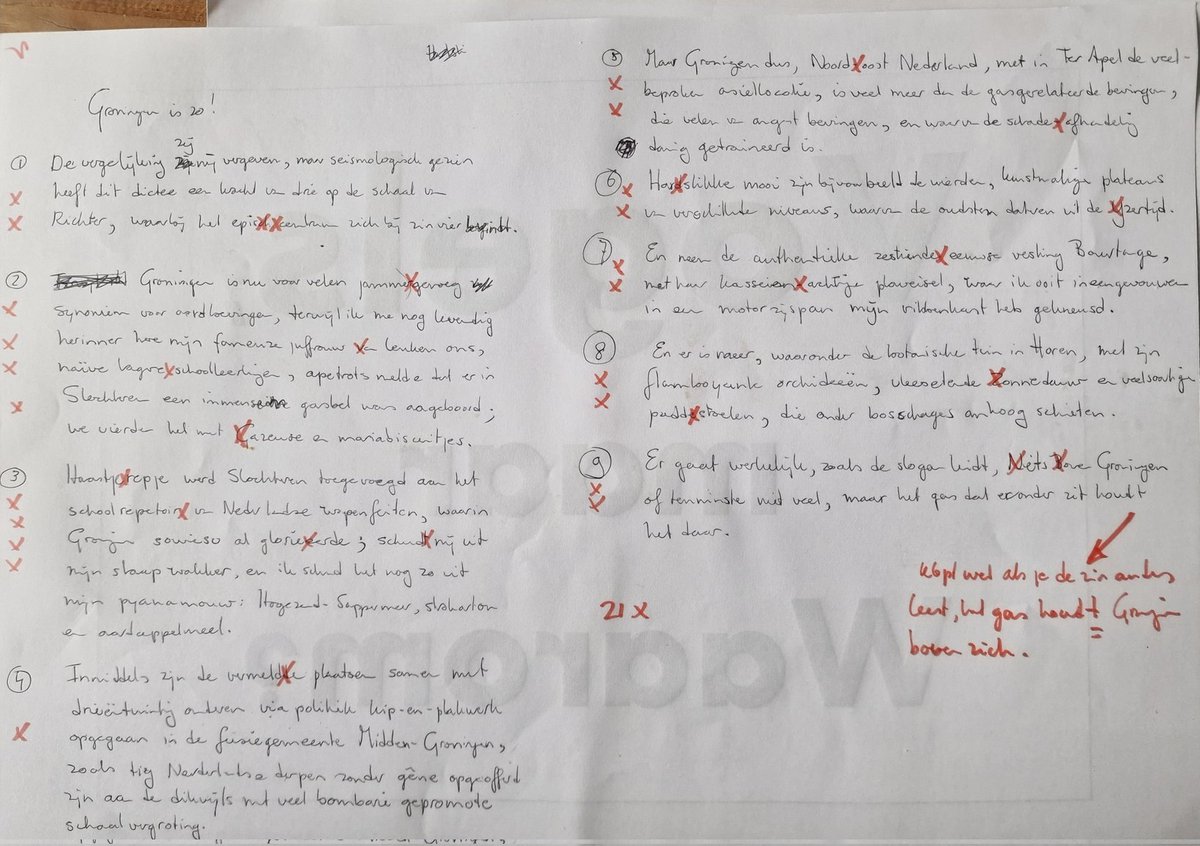 Groningen is zo!
zij
① De vergelijking mij vergeven, maar seismologisch gezien
heeft dit dictee een kracht van drie op de schaal van
Richter, waarbij het epicentrum zich bij zin vier bevindt.
② Groningen is nu voor velen jammergenoeg
synoniem voor aardbevingen, terwijl ik me nog levendig
herinner hoe mijn fameuze juffrouw van Leuken ons,
naïeve lagereschoolleerlingen, apetrots meldde dat er in
Slochteren een immense gasbel was aangeboord;
we vierden het met Gazeuse en mariabiscuitjes.
③ Haastjerepje werd Slochteren toegevoegd aan het
schoolrepetoir van Nederlandse wapenfeiten, waarin
Groningen sowieso al glorieerde; schudt mij uit
mijn slaap wakker, en ik schud het nog zo uit
mijn pyjamamouw: Hogezand-Sappemeer, strokarton
en aardappelmeel.
④ Inmiddels zijn de vermeldde plaatsen samen met
drieëntwintig anderen via politiek knip-en-plakwerk
opgegaan in de fusiegemeente Midden-Groningen,
zoals tig Nederlandse dorpen zonder gêne opgeofferd
zijn aan de dikwijls met veel bombarie gepromote
schaalvergroting.
⑤ Maar Groningen dus, Noord-oost Nederland, met in Ter Apel de veel-
besproken asiellocatie, is veel meer dan de gasgerelateerde bevingen,
die velen van angst bevingen, en waarvan de schadeafhandeling
danig getraineerd is.
⑥ Hardstikke mooi zijn bijvoorbeeld de wierden, kunstmatige plateaus
van verschillende niveaus, waarvan de oudsten dateren uit de IJzertijd.
⑦ En neem de authentieke zestiende-eeuwse vesting Bourtange,
met haar kasseienachtige plaveisel, waar ik ooit ineengewouwen
in een motorzijspan mijn ribbenkast heb gekneusd.
⑧ En er is meer, waaronder de botanische tuin in Haren, met zijn
flamboyante orchideeën, vleesetende Zonnedauw en veelsoortige
paddestoelen, die onder bosschages omhoog schieten.
⑨ Er gaat werkelijk, zoals de slogan luidt, Niets Bove Groningen
of tenminste niet veel, maar het gas dat eronder zit houdt
het daar.
21 x
klopt wel als je de zin anders
leest, het gas houdt Groningen
boven zich.